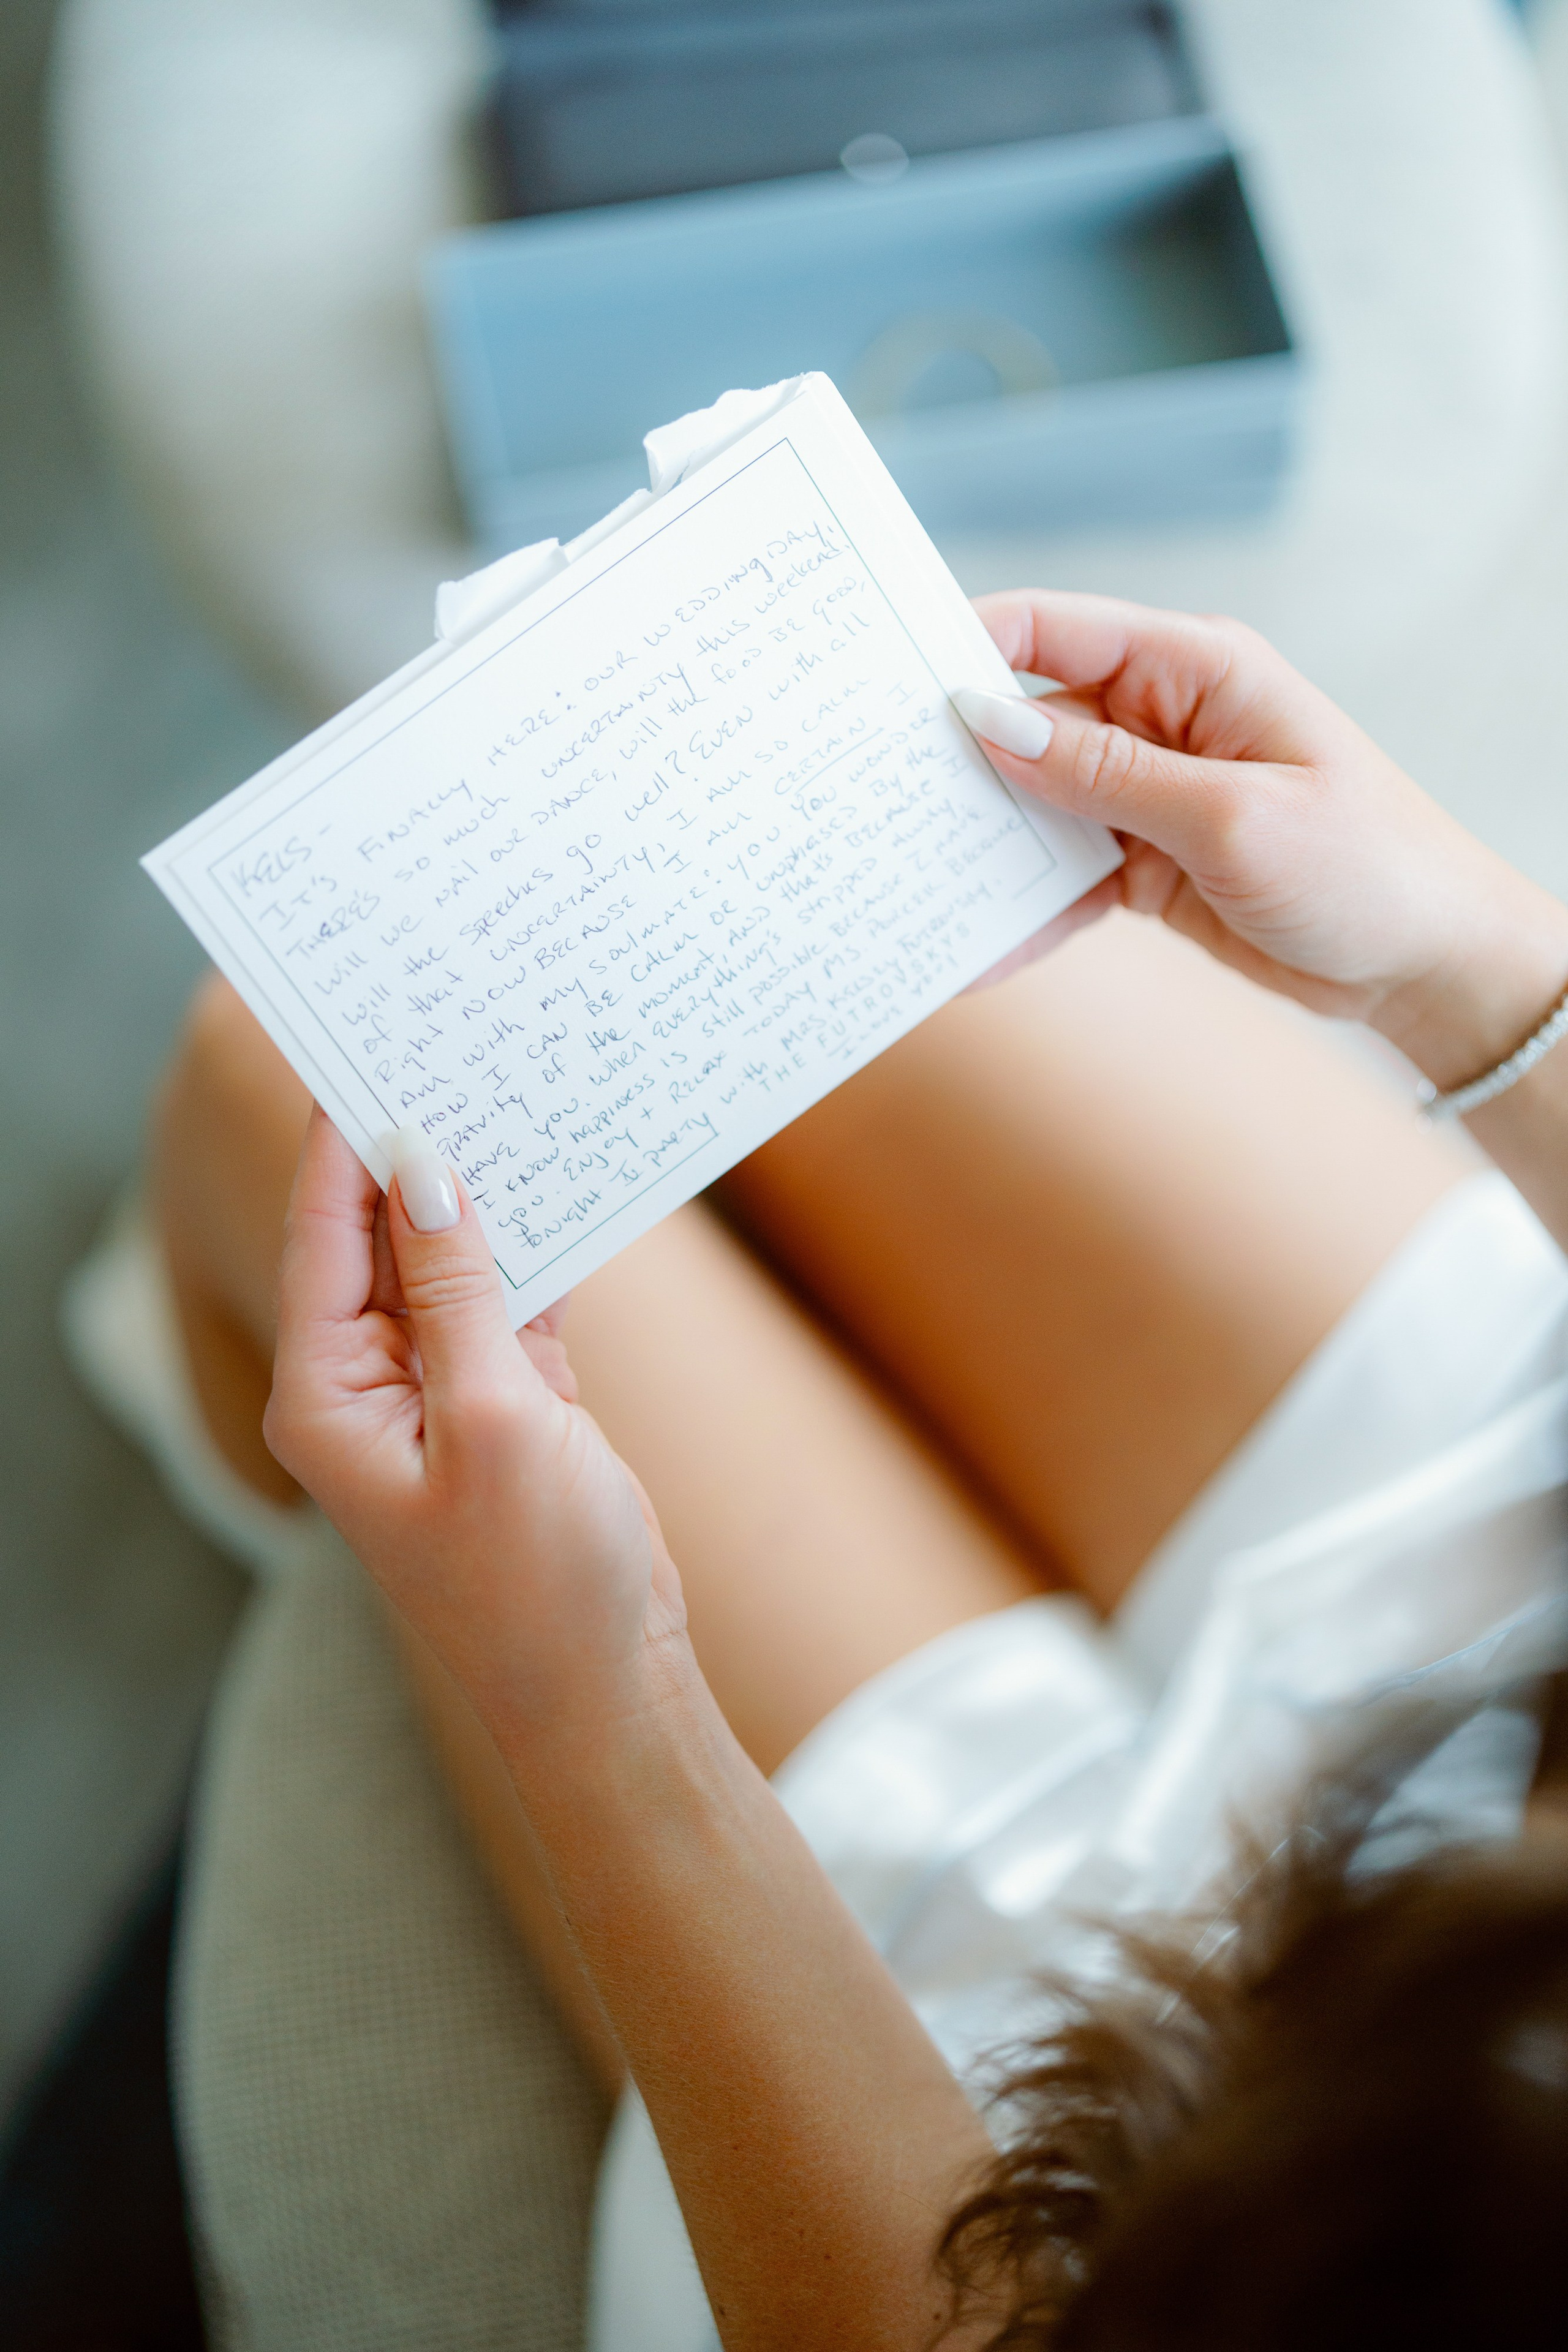 KELS -
IT'S FINALLY HERE: OUR WEDDING DAY.
THERE'S SO MUCH UNCERTAINTY this weekend.
will we nail our DANCE, will the food BE GOOD,
will the speeches go well? EVEN with all
of that UNCERTAINTY, I AM SO CALM
Right NOW BECAUSE I AM CERTAIN I
AM with my soulmate: you. You WONDER
HOW I CAN BE CALM OR unphased By the
gravity of the moment, AND that's BECAUSE I
HAVE you. When EVERYthing's stripped away,
I KNOW happiness is still possible BECAUSE I have
you. Enjoy + Relax TODAY MS. BECAUSE
tonight I party with MRS. KELSY
THE FUTROVSKYS
I LOVE YOU!